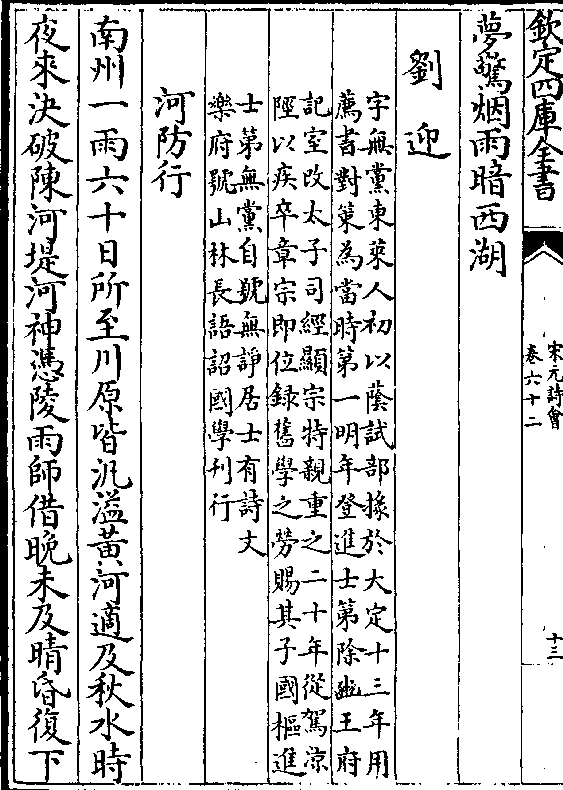 欽定四庫全書
宋元詩會
卷六十二
十三
夢驚烟雨暗西湖
劉迎
字無黨東萊人初以蔭試部掾於大定十三年用
薦書對策為當時第一明年登進士第除豳王府
記室改太子司經顯宗特親重之二十年從駕涼
陘以疾卒章宗即位錄舊學之勞賜其子國樞進
士第無黨自號無諍居士有詩文
樂府號山林長語詔國學刊行
河防行
南州一雨六十日所至川原皆汎溢黃河適及秋水時
夜來決破陳河堤河神憑陵雨師借晚未及晴昏復下